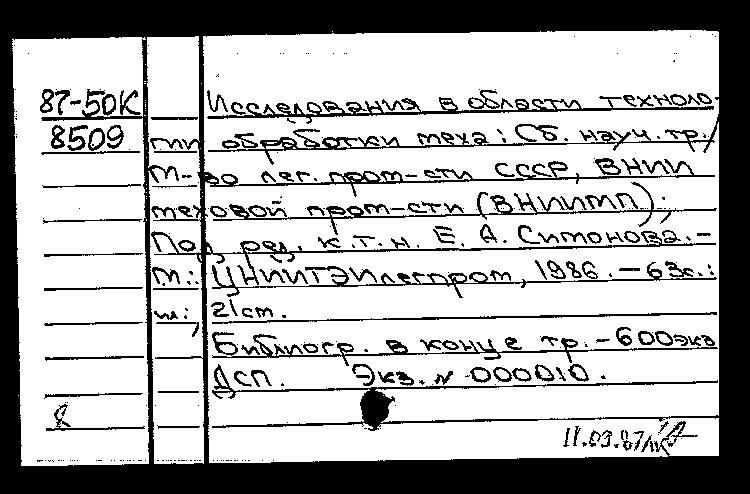 87-50К Исследования в области техноло-
8509 гии обработки меха: Сб. науч. тр./
М-во лег. пром-сти СССР, ВНИИ
меховой пром-сти (ВНИИМП);
Под ред. к.т.н. Е. А. Симонова. -
М.: ЦНИИТЭИлегпром, 1986. - 63с.:
ил; 21см.
Библиогр. в конце тр. - 600экз
ДСП. Экз. № 000010.
8
11.03.87